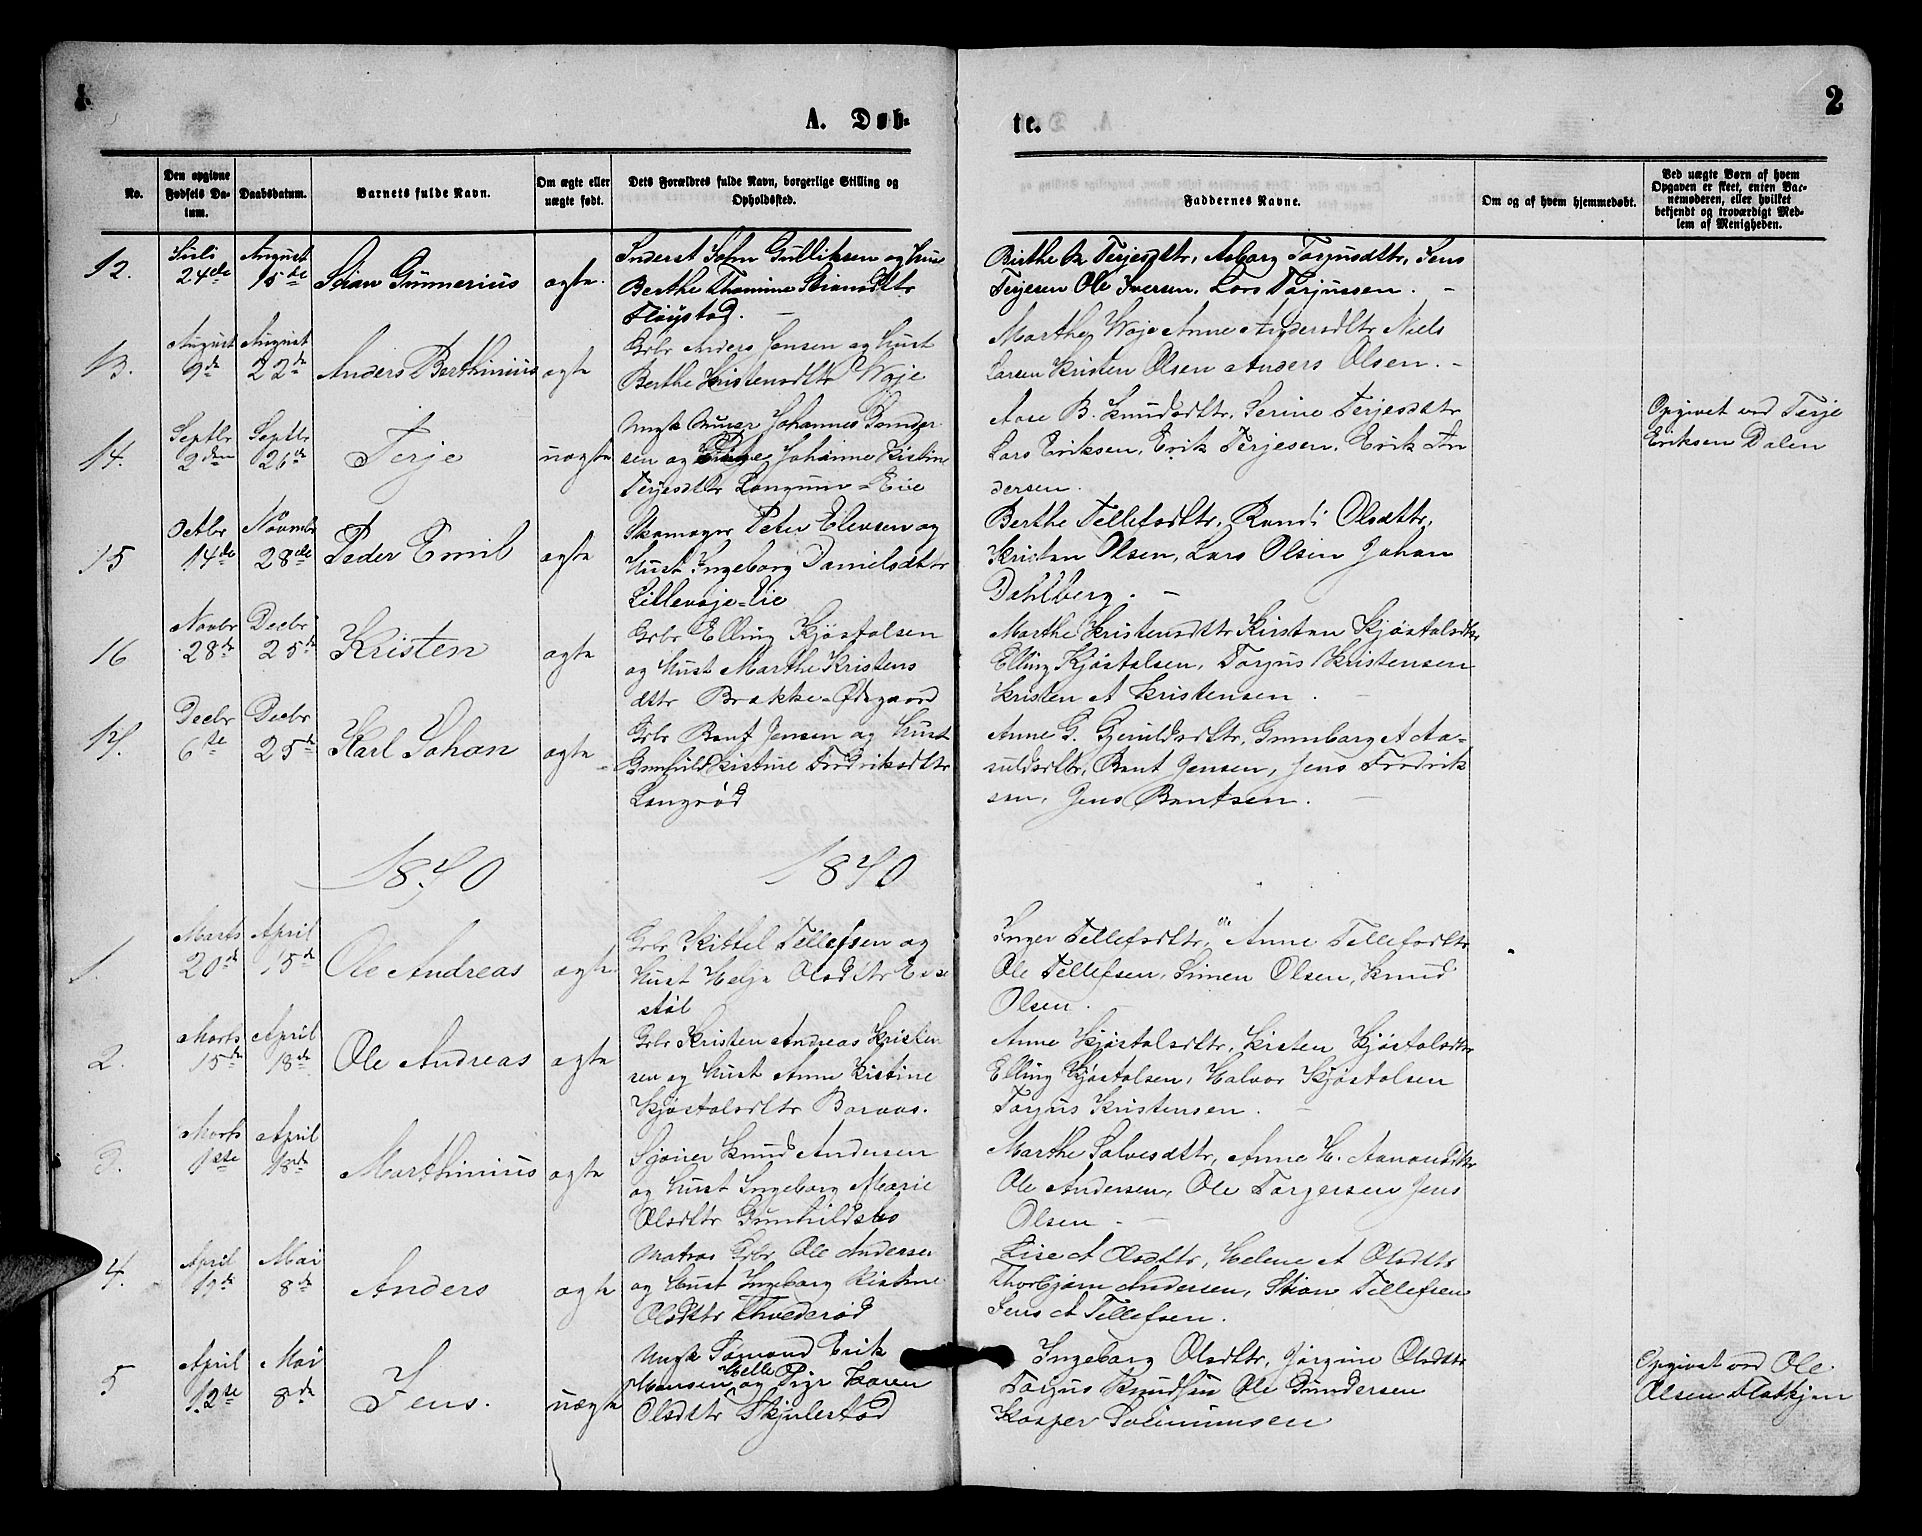 1
2
A. Døb-
te.
No.
Den opgivne Fødsels Da-tum.
Daabsdatum.
Barnets fulde Navn.
Om ægte eller uægte født.
Dets Forældres fulde Navn, borgerlige Stilling og Opholdssted.
Faddernes Navne.
Om og af hvem hjemmedøbt.
Ved uægte Børn af hvem Opgaven er skeet, enten Bar-nemoderen, eller hvilket bekjendt og troværdigt Med-lem af Menigheden.
12.
Juli 24de
August 15de
Stian Gunnerius
ægte.
Inderst John Gulliksen og Hust
Berthe Thomine Stiansdttr
Fløystad.
Birthe K Terjesdttr, Asborg Torjusdttr, Jens
Terjesen Ole Iversen, Lars Torjussen.
13.
August 9de
August 22de
Anders Berthinius
ægte
Grbr Anders Jensen og Hust
Berthe Kristensdttr Woje
Marthe Woje Anne Andersdttr Niels
Larsen Kristen Olsen Anders Olsen.
14.
Septbr 2den
Septbr 26de
Terje
uægte
Ungk Johannes Gunder
sen og Pige Johanne Kistine
Terjesdttr Langum-Eie
Aase B. Knudsdttr, Serine Terjesdttr
Lars Eriksen, Erik Terjesen, Erik An
dersen.
Opgivet ved Terje
Eriksen Dalen
15
Octbr 14de
Novmbr 28de
Peder Emil
ægte
Skomager Peter Elevsen og
Hust Ingeborg Danielsdttr
Lillevoje-Eie
Berthe Tellefsdttr, Randi Olsdttr,
Kristen Olsen, Lars Olsen Johan
Dahlberg.
16
Novbr 28de
Decbr 25de
Kristen
ægte
Grbr Elling Kjøstolsen
og Hust Marthe Kristens
dttr Brække-Ødegaard
Marthe Kristensdttr Kirsten Kjøstolsdttr
Elling Kjøstolsen, Torjus Kristensen
Kristen A Kristensen.
17.
Decbr 6te
Decbr 25de
Karl Johan
ægte
Grbr Bent Jensen og Hust
Gunhild Kistine Fredriksdttr
Langrød
Anne G. Gjeruldsdttr, Gunborg A Aa-
suldsdttr, Bent Jensen, Jens Fredrik
sen, Jens Bentsen.
1870
1870
1.
Marts 20de
April 15de
Ole Andreas
ægte
Grbr Kittel Tellefsen og
Hust Helje Olsdttr
støl
Inger Tellefsdttr, Anne Tellefsdttr
Ole Tellefsen, Simen Olsen, Knud
Olsen.
2.
Marts 15de
April 18de
Ole Andreas
ægte
Grbr Kristen Andreas Kristen
sen og Hust Anne Kistine
Kjøstolsdttr Boraas.
Anne Kjøstolsdttr, Kisten Kjøstolsdttr
Elling Kjøstolsen, Halvor Kjøstolsen
Torjus Kristensen.
3.
Marts 1ste
April 18de
Marthinius
ægte
Sjøier Knud Andersen
og Hust Ingeborg Marie
Olsdttr Gunhildsbo
Marthe Salvesdttr, Anne H. Aanonsdttr
Ole Andersen, Ole Torgersen Jens
Olsen
4.
April 19de
Mai 8de
Anders
ægte
Matros Grbr Ole Andersen
og Hust Ingeborg Kistine
Olsdttr Thvederød
Lise A Olsdttr, Helene A Olsdttr
Thorbjørn Andersen, Stian Tellefsen
Jens A Tellefsen.
5
April 12te
Mai 8de
Jens.
uægte
Ungk Sømand Erik
Hansen Helle og Pige Karen
Olsdttr Skjulestad
Ingeborg Olsdttr, Jørgine Olsdttr
Torjus Knudsen Ole Gundersen
Kasper Salimonsen
Opgivet ved Ole
Olsen Flatkjen